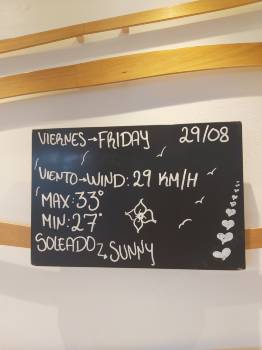 VIERNES→FRIDAY 29/08
VIENTO→WIND: 29 KM/H
MAX: 33°
MIN: 27°
SOLEADO↳SUNNY